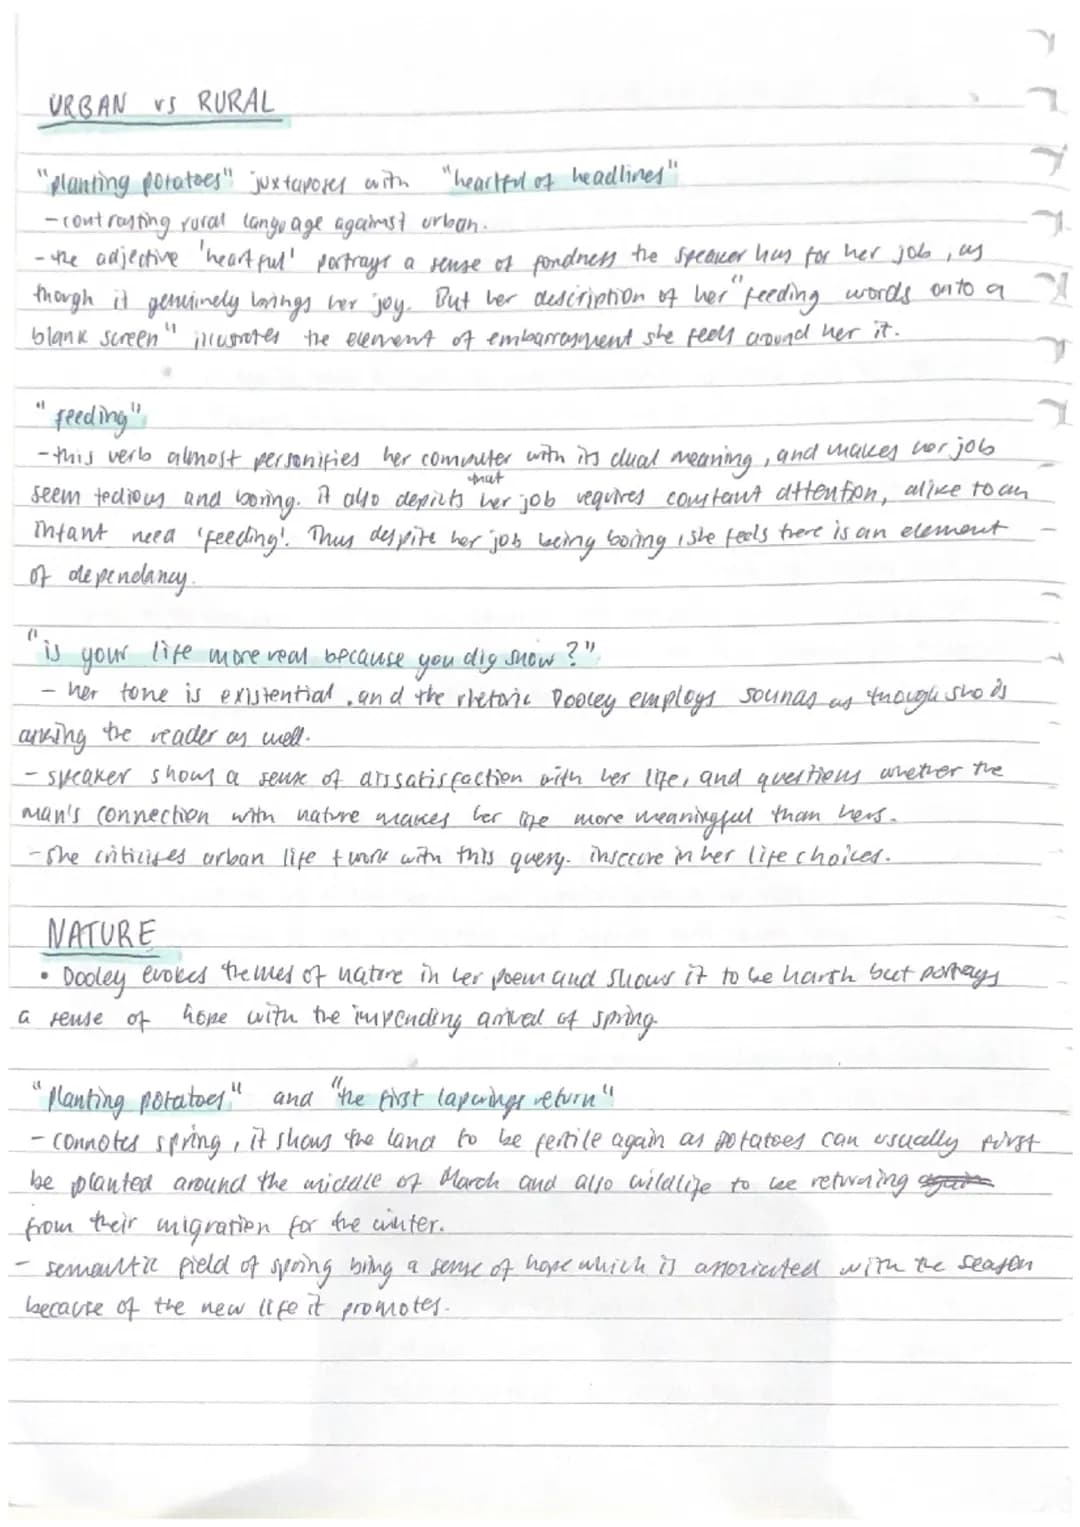 URBAN vs RURAL
"planting potatoes" juxtaposes with "heartful of headlines"
- contrasting rural language against urban.
- the adjective 'heartful' portrays a sense of fondness the speaker has for her job, as
though it genuinely brings her joy. But her description of her "feeding words onto a
blank screen" illustrates the element of embarrassment she feels around her it.
"feeding"
- this verb almost personifies her computer with its dual meaning, and makes her job
that
seem tedious and boring. it also depicts her job requires constant attention, alike to an
infant need 'feeding'. Thus despite her job being boring, she feels there is an element
of dependancy.
"is your life more real because you dig snow?"
- her tone is existential, and the rhetoric Dooley employs sounds as though she is
asking the reader as well.
- speaker shows a sense of dissatisfaction with her life, and questions whether the
man's connection with nature makes her life more meaningful than hers.
- She criticises urban life + work with this query. insecure in her life choices.
NATURE
• Dooley evokes themes of nature in her poem and shows it to be harsh but portrays
a sense of hope with the impending arrival of spring
"planting potatoes" and "the first lapwings return"
- connotes spring, it shows the land to be fertile again as potatoes can usually first
be planted around the middle of March and also wildlife to be returning again
from their migration for the winter.
- semantic field of spring bring a sense of hope which is associated with the season
because of the new life it promotes.